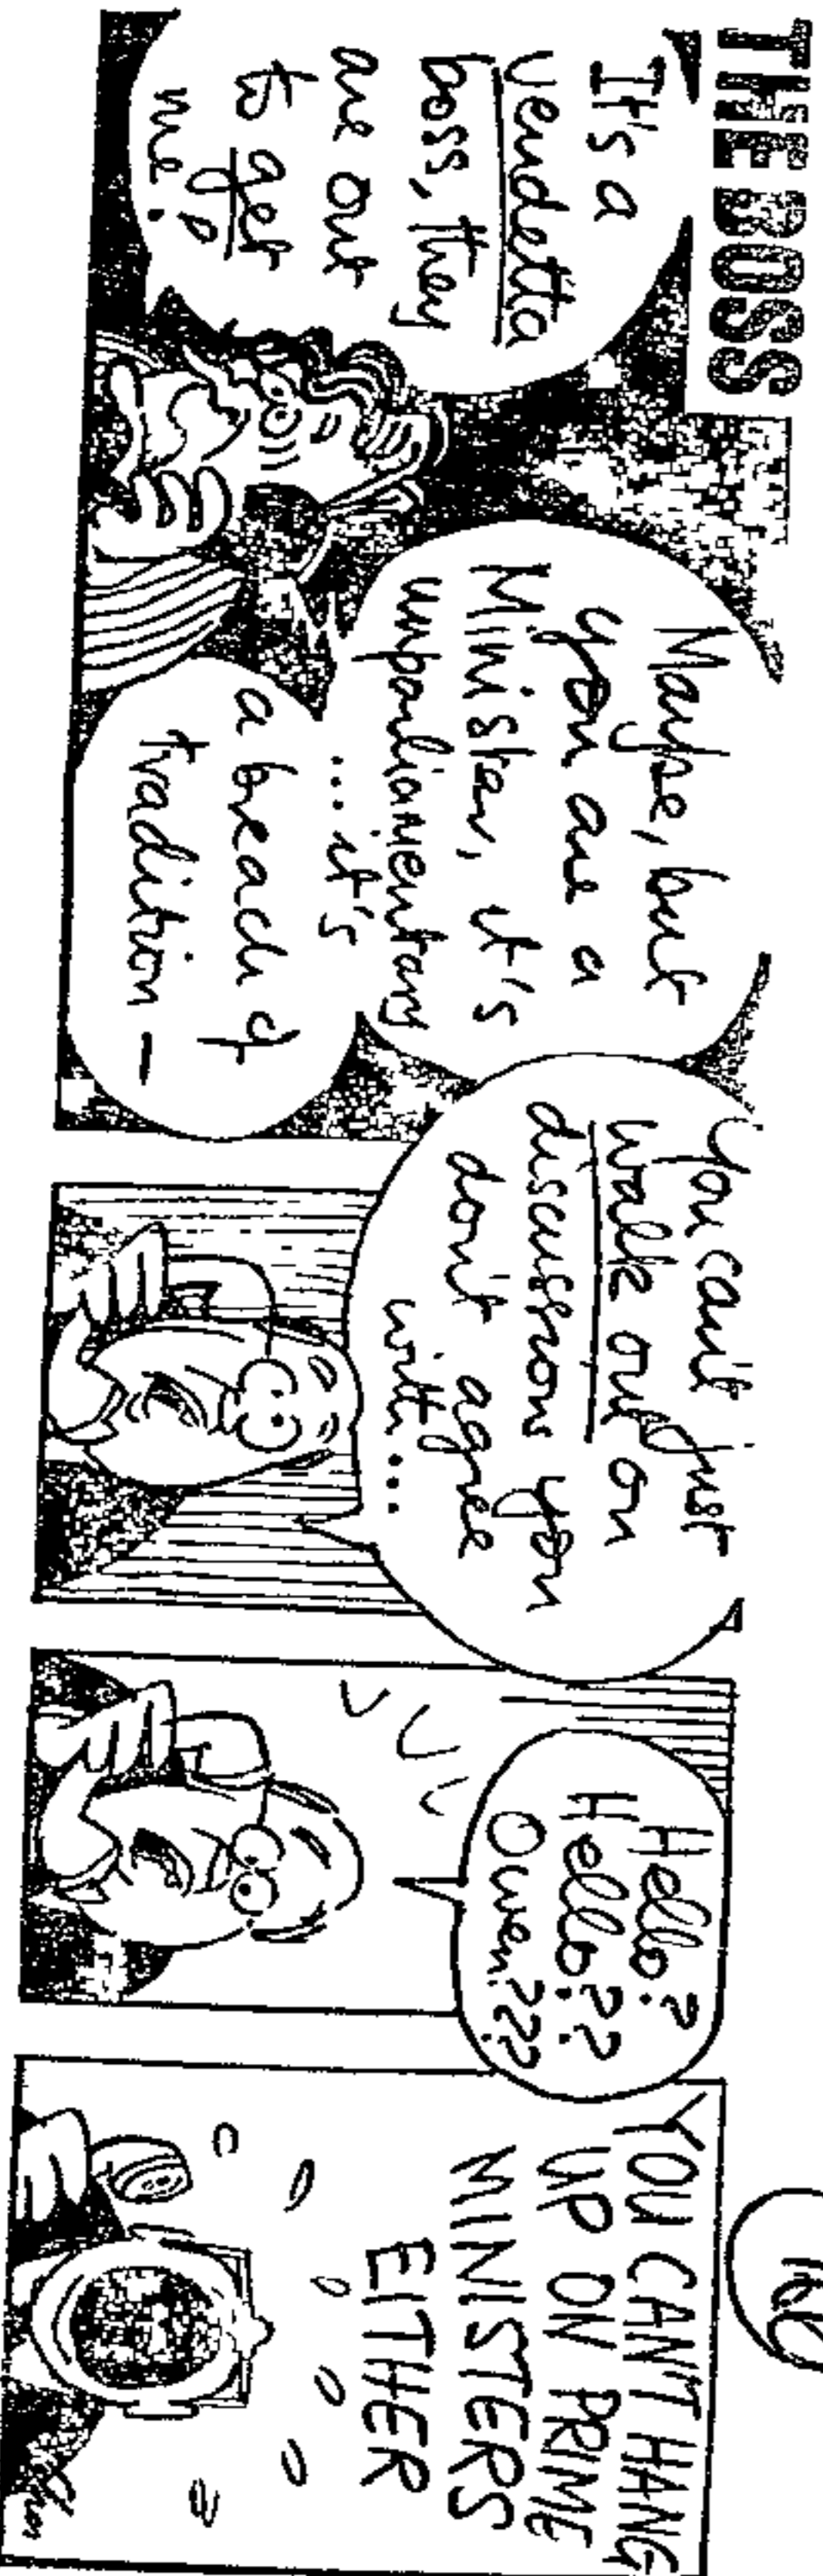 THE BOSS
It's a
vendetta
boss, they
are out
to get
me!
Maybe, but
you are a
Minister, it's
unparliamentary
...it's
a breach of
tradition -
You can't just
walk out on
discussions you
don't agree
with...
Hello?
Hello??
Owen???
YOU CAN'T HANG
UP ON PRIME
MINISTERS
EITHER